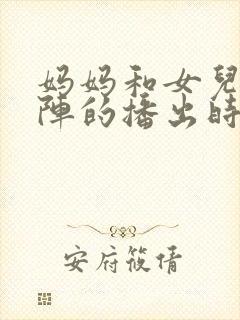 妈妈和女兒
陣的播出時
安府筱倩